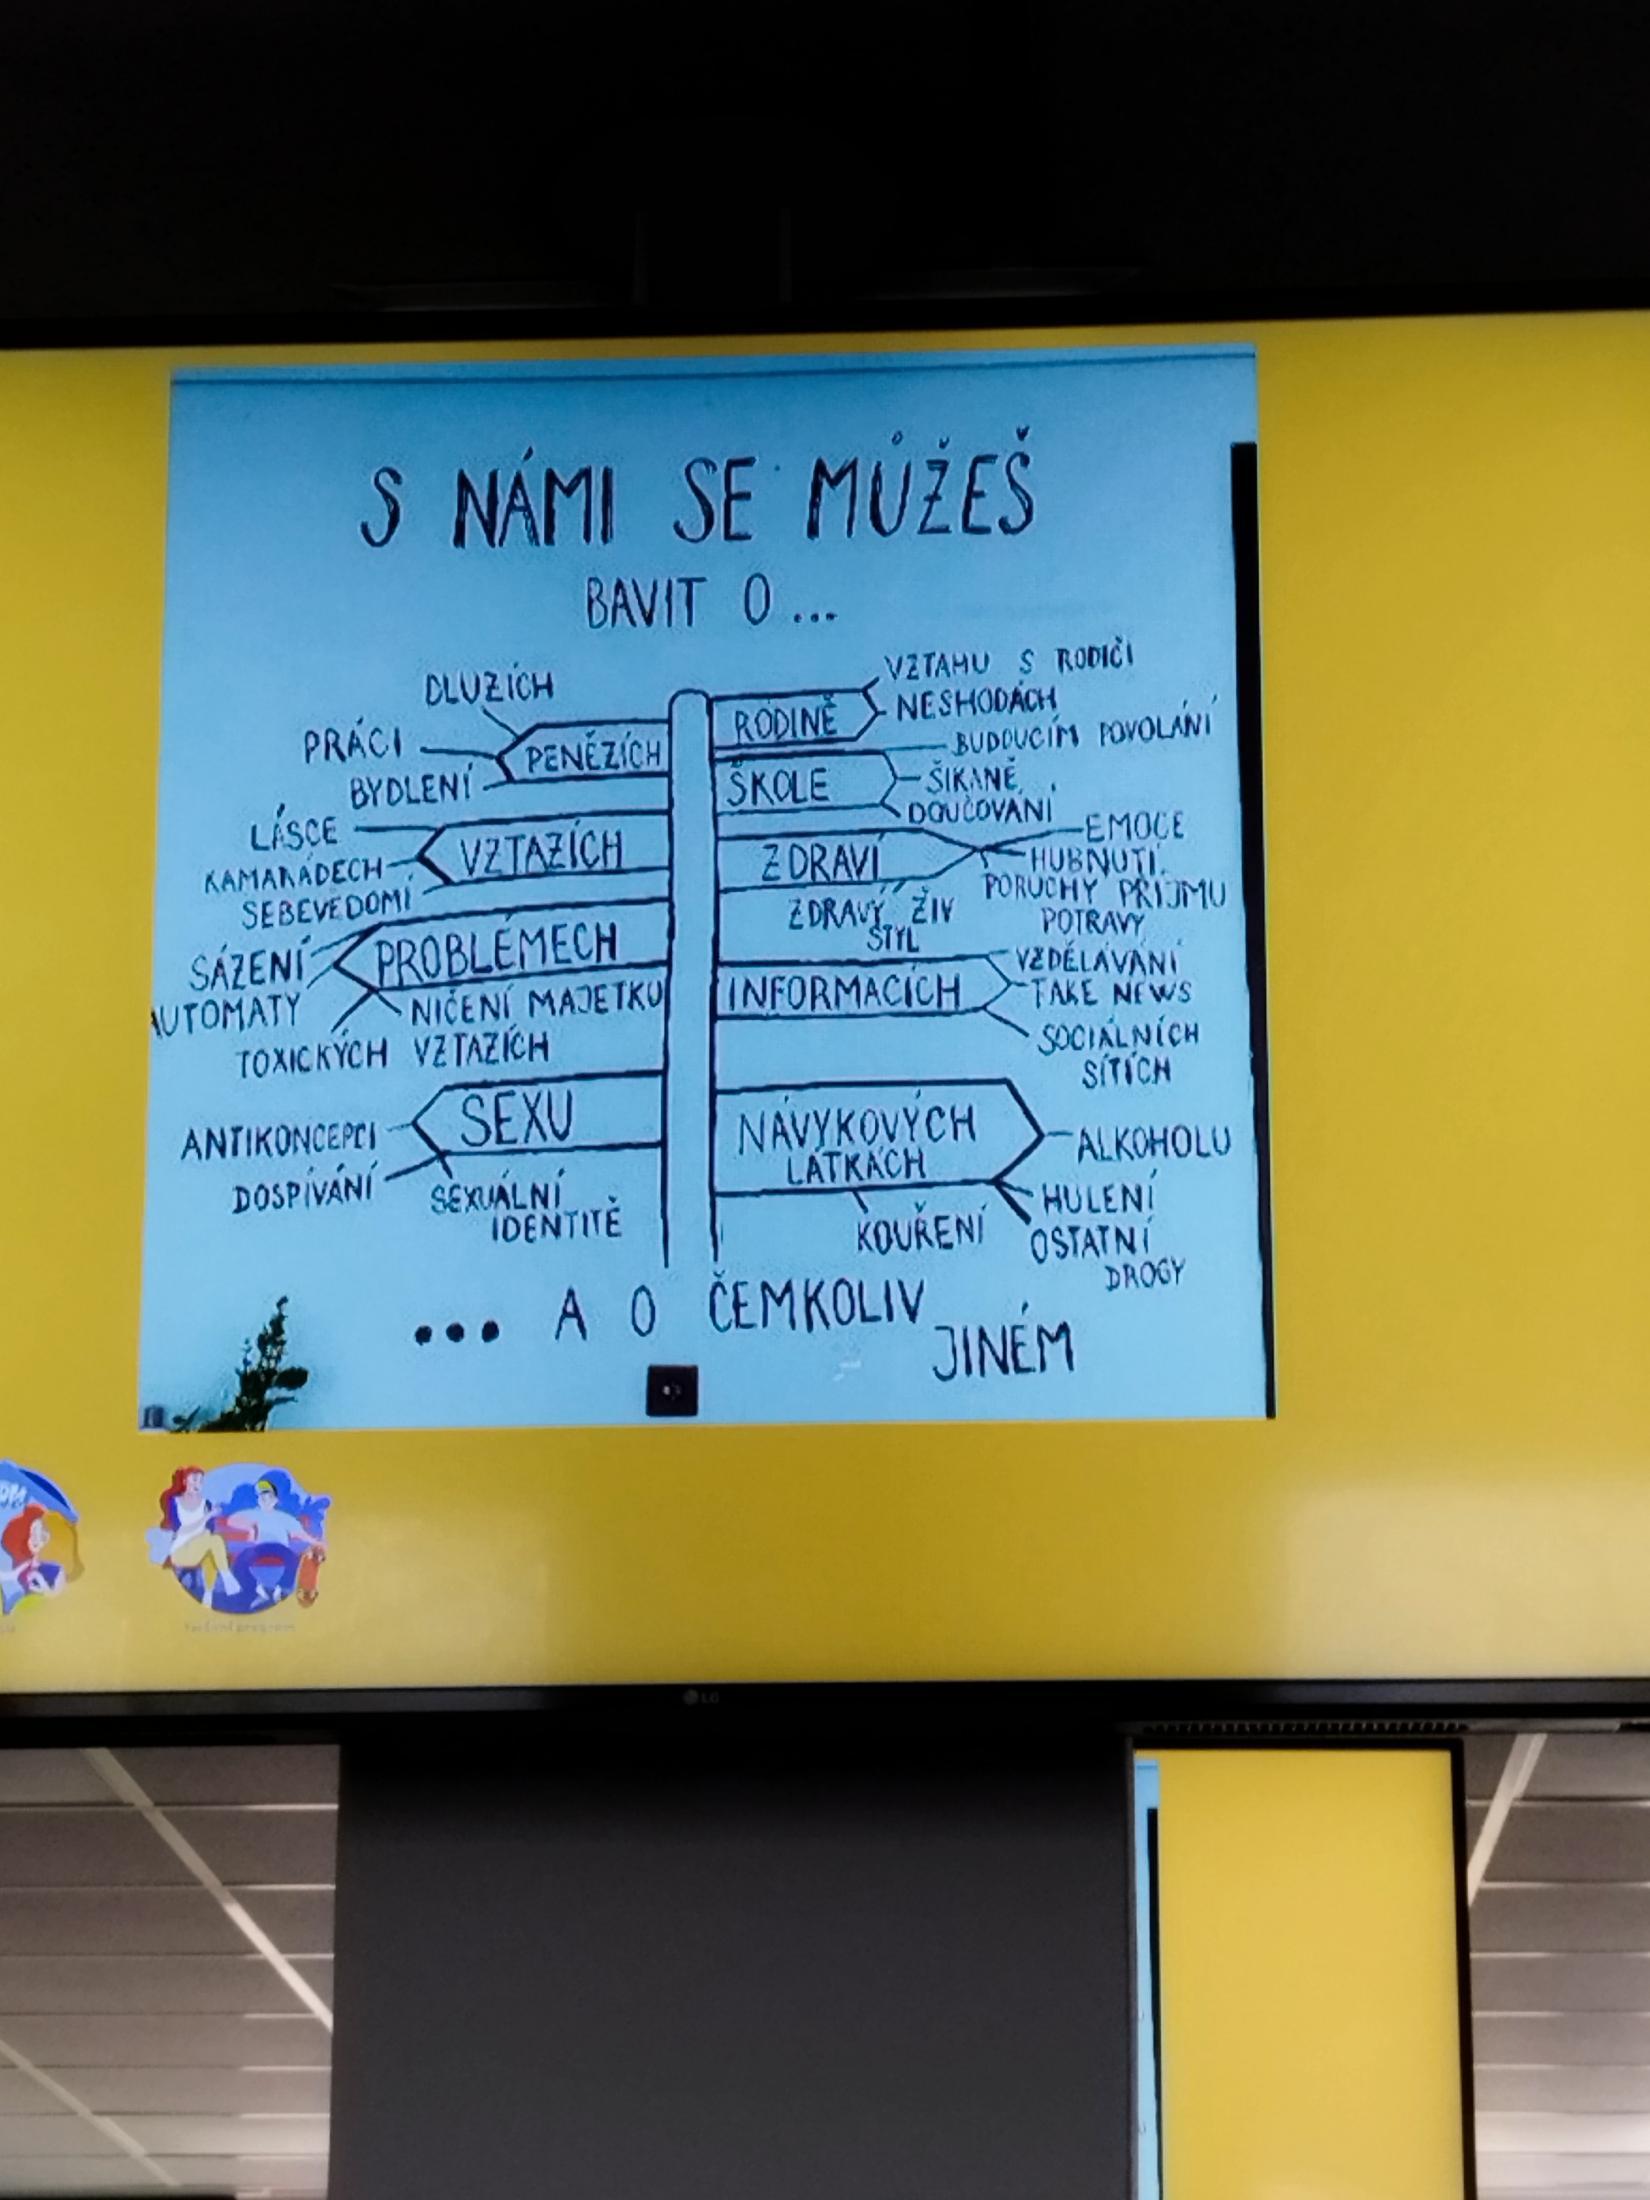 S NÁMI SE MŮŽEŠ
BAVIT O ...
DLUZÍCH
PRÁCI
BYDLENÍ
PENĚZÍCH
VZTAHU S RODIČI
NESHODÁCH
RODINĚ
BUDOUCÍM POVOLÁNÍ
ŠIKANĚ
DOUČOVÁNÍ
ŠKOLE
LÁSCE
KAMARÁDECH
SEBEVĚDOMÍ
VZTAZÍCH
EMOCE
HUBNUTÍ
PORUCHY PŘÍJMU
POTRAVY
ZDRAVÍ
ZDRAVÝ ŽIV
STYL
SÁZENÍ
AUTOMATY
PROBLÉMECH
NIČENÍ MAJETKU
TOXICKÝCH VZTAZÍCH
INFORMACÍCH
VZDĚLÁVÁNÍ
TAKE NEWS
SOCIÁLNÍCH
SÍTÍCH
SEXU
ANTIKONCEPCI
DOSPÍVÁNÍ
SEXUÁLNÍ
IDENTITĚ
NÁVYKOVÝCH
LÁTKÁCH
ALKOHOLU
HULENÍ
KOUŘENÍ
OSTATNÍ
DROGY
... A O ČEMKOLIV
JINÉM
LG